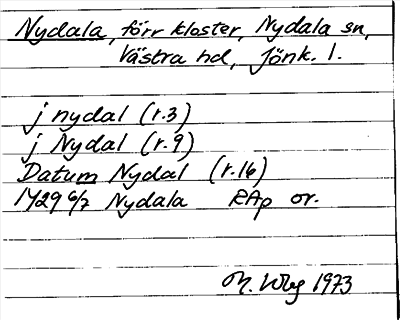 Nydala, förr kloster, Nydala sn,
Västra hd, Jönk. l.
j nydal (r.3)
j Nydal (r.9)
Datum Nydal (r.16)
1429 6/7 Nydala RAp or.
M. 1973